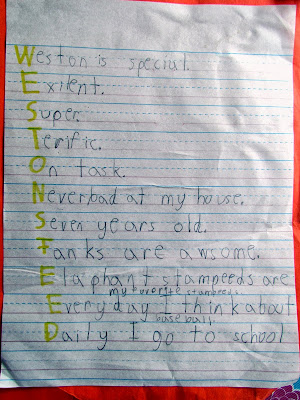 Weston is special.
Exilent.
Super.
Terific.
On task.
Never bad at my house.
Seven years old.
Tanks are awsome.
Elaphant stampeeds are
my favorite stampeeds.
Every day I think about
baseball
Daily I go to school